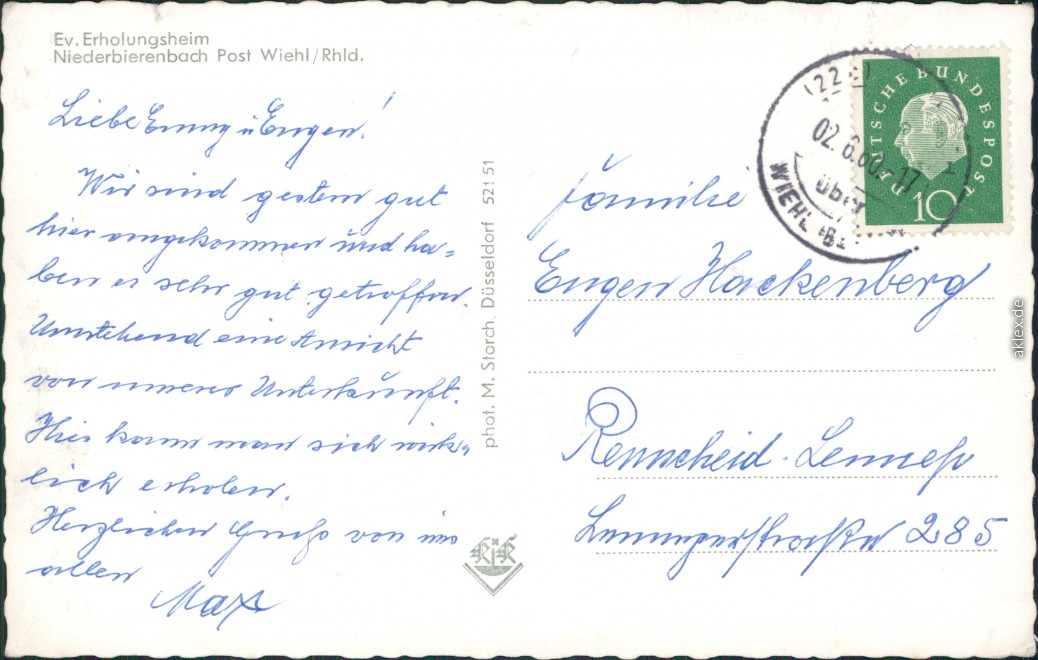 Ev. Erholungsheim
Niederbierenbach Post Wiehl/Rhld.
Liebe Emmy u Eugen!
Wir sind gestern gut
hier angekommen und ha=
ben es sehr gut getroffen.
Umstehend eine Ansicht
von unserer Unterkunft.
Hier kann man sich wirk=
lich erholen.
Herzlichen Gruß von uns
allen
Max
phot. M. Storch, Düsseldorf 52151
(22
02.6.60.-17
über
WIEHL
DEUTSCHE BUNDESPOST
10
Familie
Eugen Hackenberg
Remscheid-Lennep
Lenneperstraße 285
aklex.de